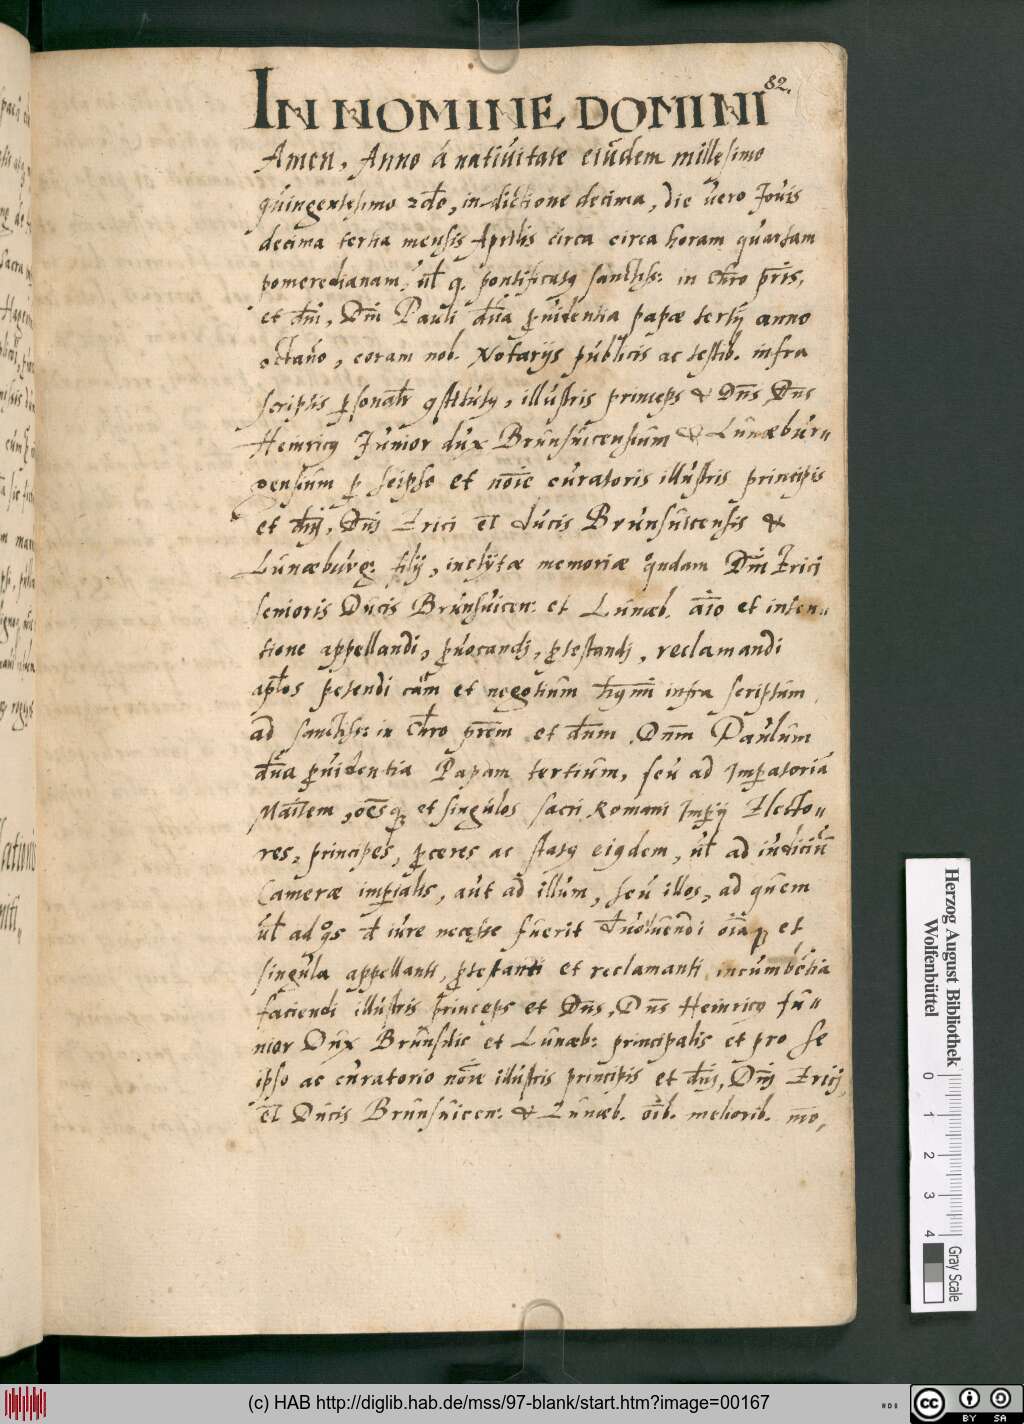 82.
IN NOMINE DOMINI
Amen, Anno á nativitate eiúdem millesimo
qúingentesimo 2do, indictione decima, die vero Jovis
decima tertia mensis Aprilis circa circa horam qúartam
pomeredianam, vel q. pontificatus sanctiss: in Chro pris,
et dni, Dni Pauli diva pruidentia papæ tertij anno
octavo, coram nob. Notarijs públicis ac testib. infra
scriptis psonalr cstitutus, illústris princeps & Dns Dns
Heinricus Júnior dúx Brúnsúicensiúm & Lúnæbúr„
gensiúm p seipso et noie cúratoris illústris principis
et dnj, Dnj Erici el dúcis Brúnsúicensis &
Lúnæbúrg: filij, inclÿtæ memoriæ qndam Dni Erici
senioris Dúcis Brúnsúicen: et Lúnæb. aio et inten„
tione appellandi, pvocandj, ptestandj, reclamandi
aplos petendi cám et negotiúm hmoi infra scriptúm
ad sanctiss: in Chro prem et dnum Dnm Paúlúm
diva pruidentia Papam tertiúm, seú ad Imperatoriá
Maiestem, oesq et singúlos sacri Romani Impij Electo„
res, principes, pceres ac statús eiusdem, vel ad iúdiciúm
Cameræ imperialis, aút ad illúm, seú illos, ad qúem
vel ad qs de iúre necesse fúerit devolvendi oia et
singúla appellanti, ptestanti et reclamanti incumbétia
faciendi illústris princeps et Dns, Dns Heinricus Jú„
nior Dúx Brúnsúic et Lúnæb: principalis et pro se
ipso ac cúratorio noie illústris principis et dnj, Dnj Ericj,
el Dúcis Brúnsúicen: & Lúnæb. oib. meliorib. mo,
Herzog August Bibliothek
Wolfenbüttel
0 1 2 3 4
Gray Scale
(c) HAB http://diglib.hab.de/mss/97-blank/start.htm?image=00167
cc BY SA